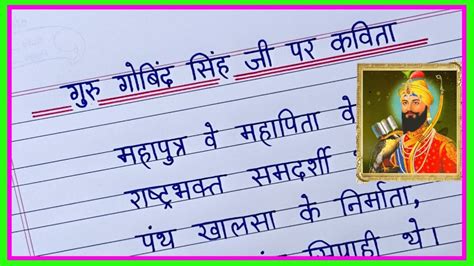 गुरु गोबिंद सिंह जी पर कविता
महापुत्र वे महापिता वे
राष्ट्रभक्त समदर्शी
पंथ खालसा के निर्माता,
सिपाही थे।